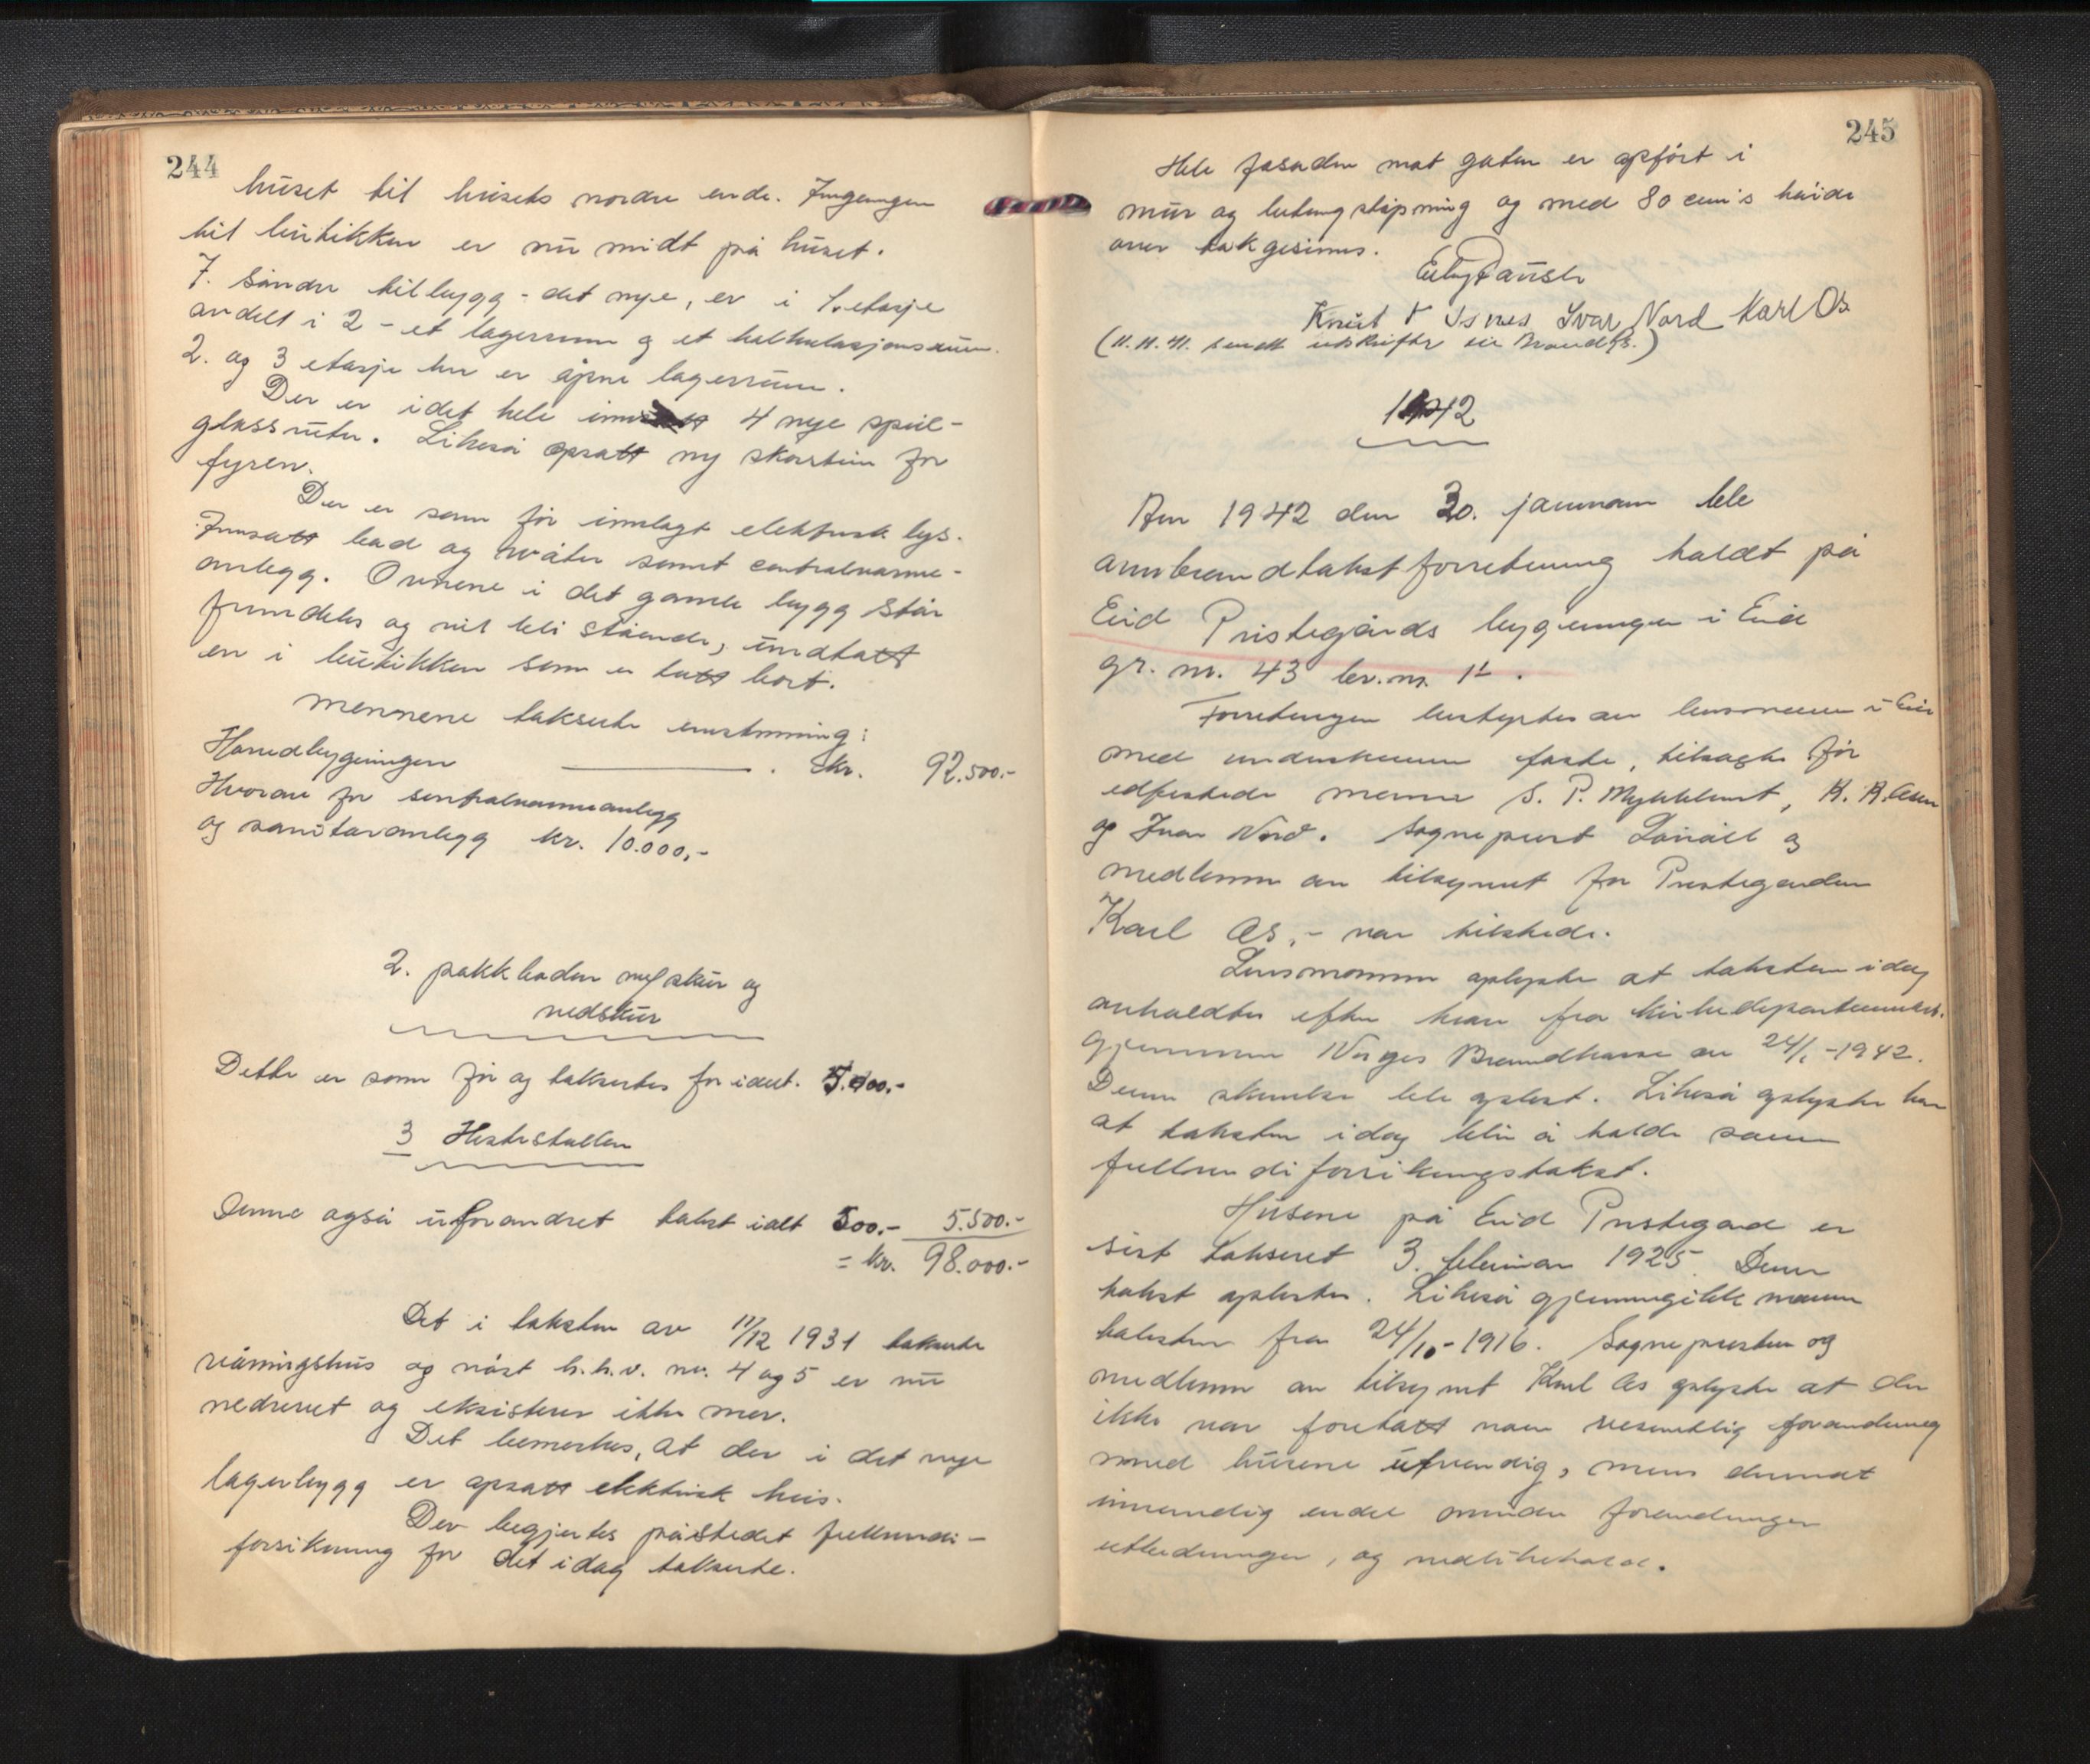 244
huset til husets nordre ende. Inngangen
til butikken er nu midt på huset.
I søndre tilbygg - det nye, er i 1. etasje
avdelt i 2 - et lagerrum og et kalkulasjonsrum.
2. og 3 etasje her er åpne lagerrum.
Der er i det hele innsatt 4 nye speil-
glassruter. Likeså opsatt ny skorstein for
fyren.
Der er som før innlagt elektrisk lys.
Innsatt bad og w åter samt centralvarme-
anlegg. Ovnene i det gamle bygg står
fremdeles og vil bli stående, undtatt
en i butikken som er tatt bort.
Mennene takserte enstemmig:
Hovedbygningen . kr. 92.500.-
Hvorav for sentralvarmeanlegg
og sanitæranlegg kr. 10.000,-
2. pakkboden m/ skur og
vedskur
Dette er som før og takseres for idest. 5.000.-
3 Hestestallen
Denne også uforandret takst ialt 500.- 5.500.-
= kr. 98.000.-
Det i taksten av 11/12 1931 takserte
våningshus og nåst h.h.v. nr. 4 og 5 er nu
nedrevet og eksisterer ikke mer.
Det bemerkes, at der i det nye
lagerbygg er opsatt elektrisk heis.
Der begjertes påstedet fullverdi-
forsikring for det idag takserte.
245
Hele fasaden mot gaten er opført i
mur og betongstøpning og med 80 cm's høide
over takgesims.
Knut V Isnes Ivar Nord Karl Os
(11.11.41. sendt utskrifter til Brandk.)
1942
Aar 1942 den 30. januar ble
ombrandtakstforretning holdt på
Eid Prestegårds bygninger i Eid
gr. nr. 43 br.nr. 1.
Forretningen bestyrtes av lensmannen i Eid
med underskrevne faste, tilsagte før
edfestede menn S. P. Myklebust, K. R. Aasen
og Ivar Nord. Sogneprest Løvåll og
medlem av tilsynet for Prestegarden
Karl Os, - var tilstede.
Lensmannen oplyste at taksten idag
avholdtes efter krav fra kirkedepartementet
gjennem Norges Brandkasse av 24/1 -1942.
Denne skrivelse ble oplest. Likeså oplyste han
at taksten idag blir å holde som
fullverdiforsikringstakst.
Husene på Eid Prestegard er
sist taksert 3. februar 1925. Denne
takst oplestes. Likeså gjennemgikk mennene
taksten fra 24/10-1916. Sognepresten og
medlem av tilsynet Karl Os oplyste at der
ikke var foretatt noen vesentlig forandring
med husene utvendig, men derimot
innvendig endel mindre forandringer
utbedringer, og vedlikehold.